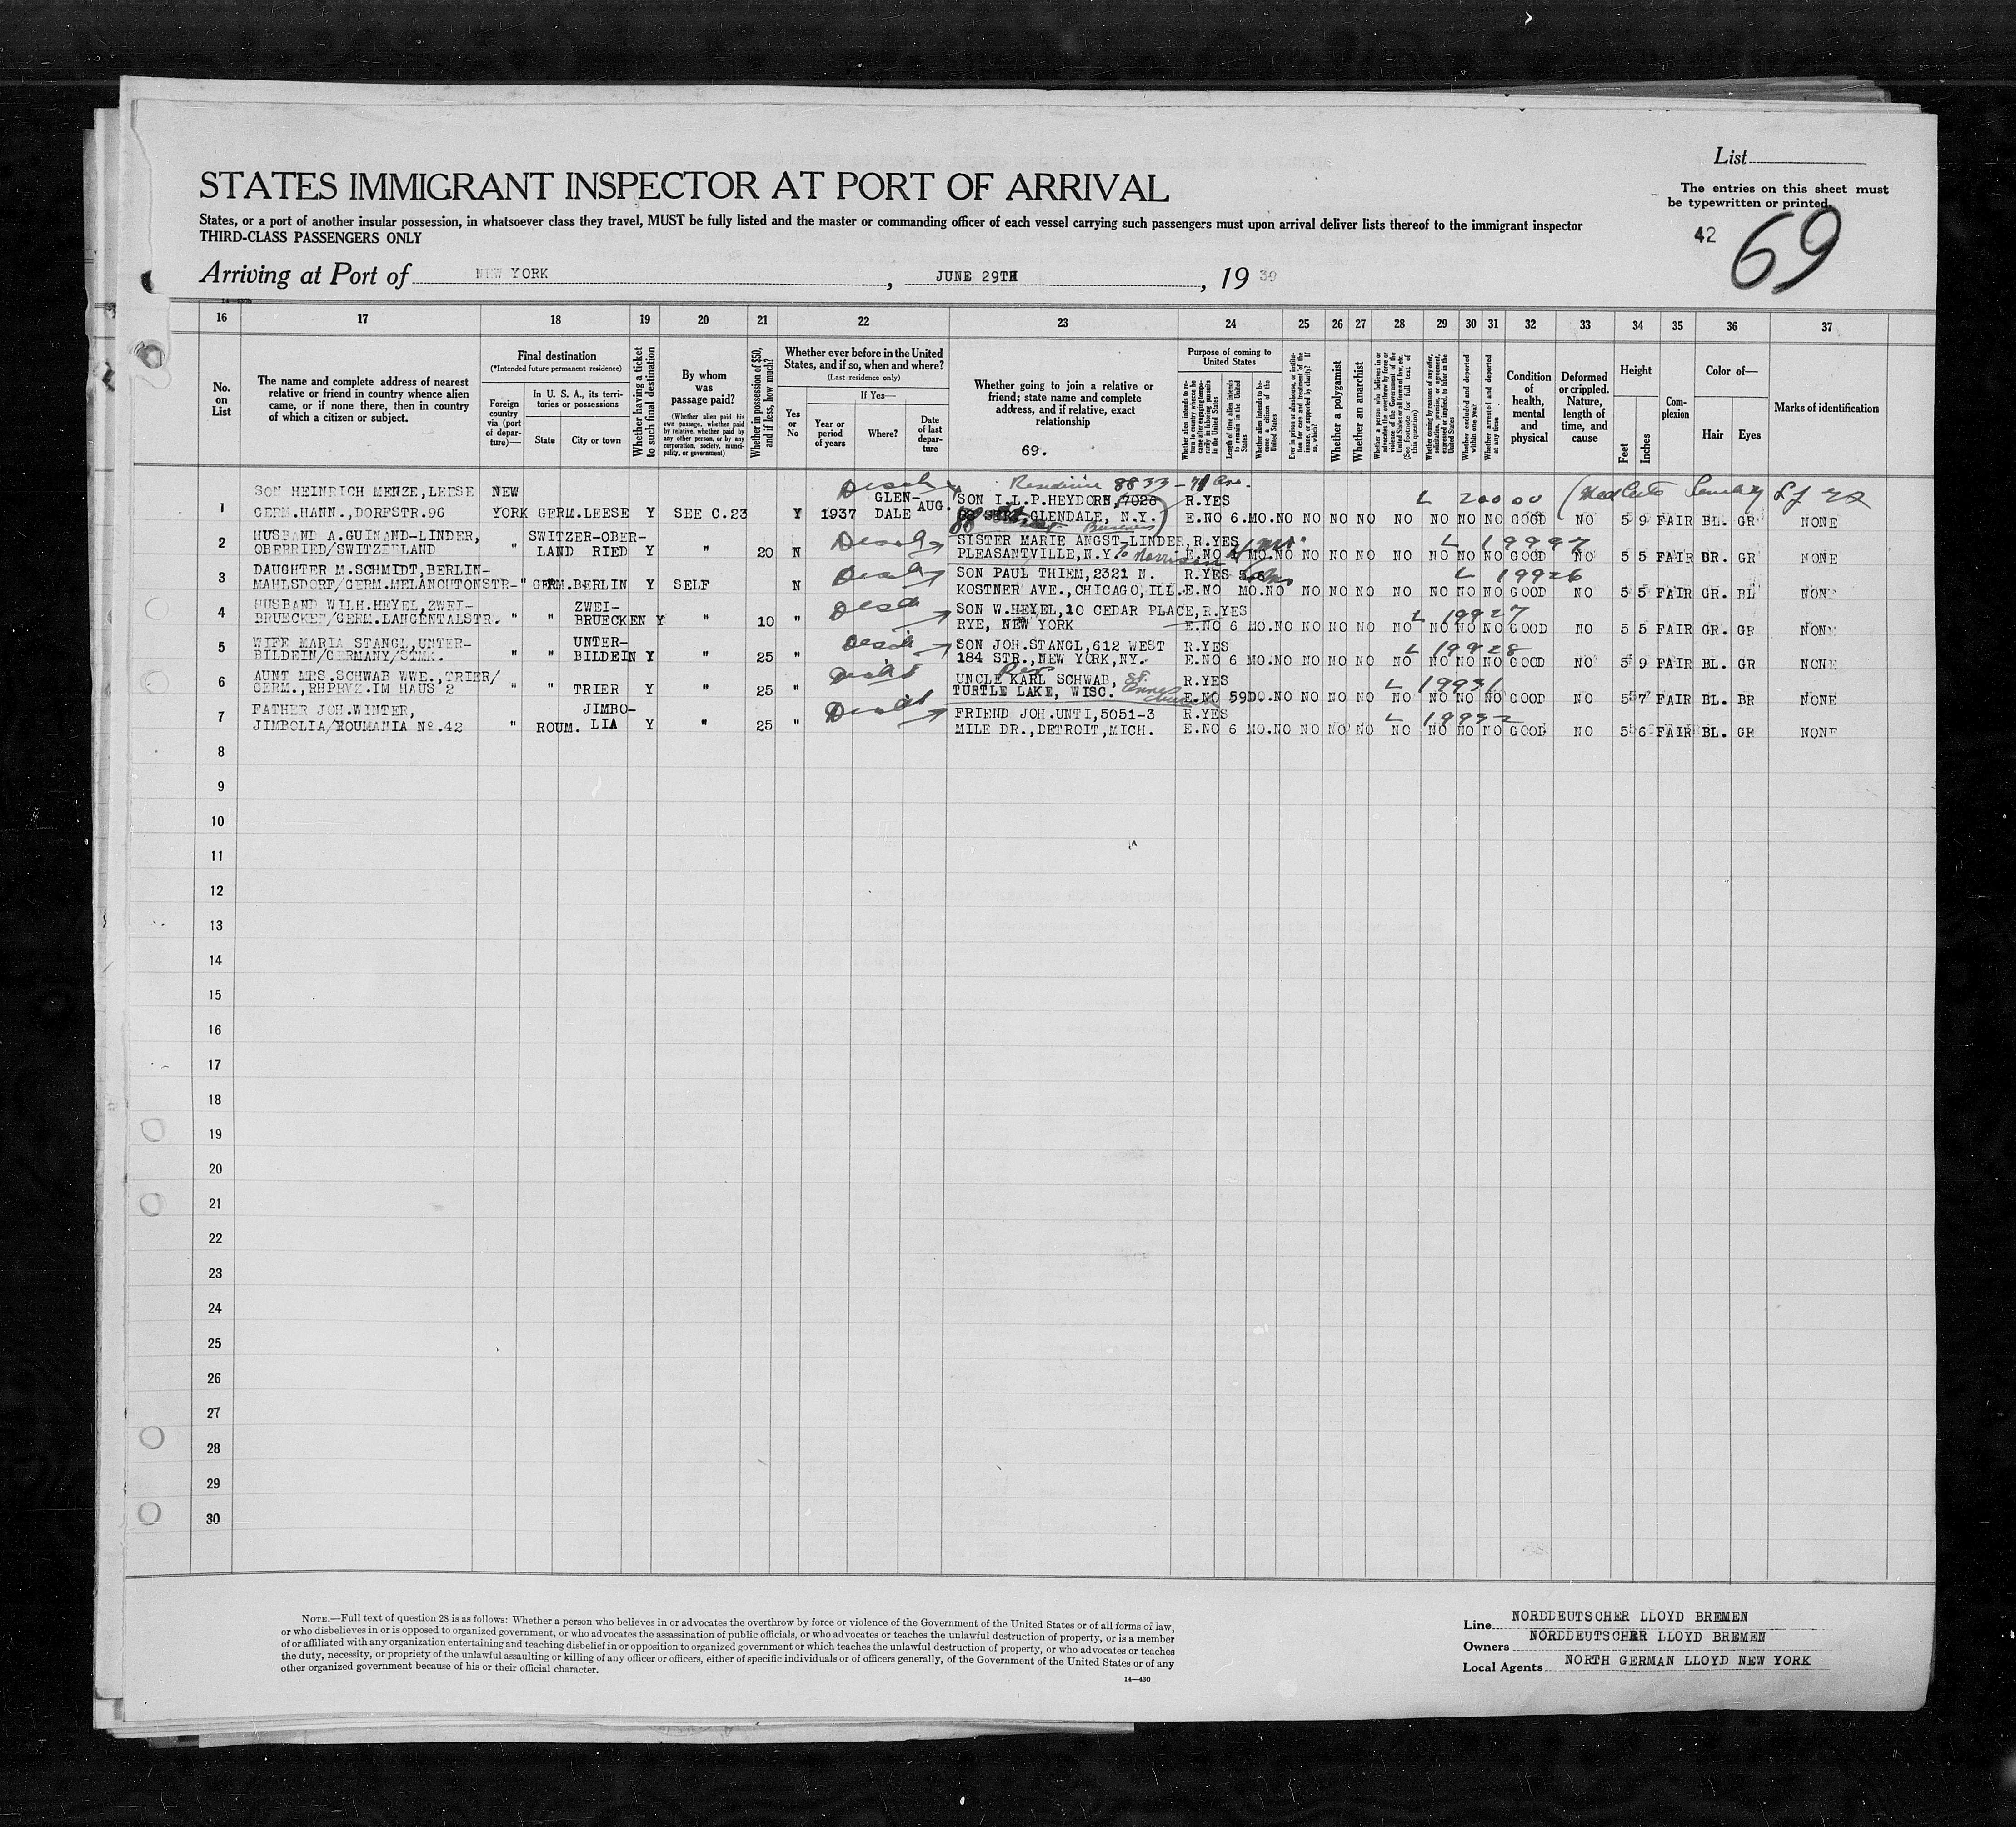 List
The entries on this sheet must
be typewritten or printed.
STATES IMMIGRANT INSPECTOR AT PORT OF ARRIVAL
States, or a port of another insular possession, in whatsoever class they travel, MUST be fully listed and the master or commanding officer of each vessel carrying such passengers must upon arrival deliver lists thereof to the immigrant inspector
THIRD-CLASS PASSENGERS ONLY
42 69
Arriving at Port of NEW YORK, JUNE 29TH, 19 39
16 17 18 19 20 21 22 23 24 25 26 27 28 29 30 31 32 33 34 35 36 37
No. on List
The name and complete address of nearest
relative or friend in country whence alien
came, or if none there, then in country
of which a citizen or subject.
Final destination
(*Intended future permanent residence)
Foreign country via (port of departure)—
In U. S. A., its territories or possessions
State City or town
Whether having a ticket to such final destination
By whom was passage paid?
(Whether alien paid his own passage, whether paid by relative, whether paid by any other person, or by any corporation, society, municipality, or government)
Whether in possession of $50, and if less, how much?
Whether ever before in the United
States, and if so, when and where?
(Last residence only)
Yes or No
If Yes—
Year or period of years
Where?
Date of last departure
Whether going to join a relative or
friend; state name and complete
address, and if relative, exact
relationship
69.
Purpose of coming to United States
Whether alien intends to return to country whence he came after engaging temporarily in laboring pursuits in the United States
Length of time alien intends to remain in the United States
Whether alien intends to become a citizen of the United States
Ever in prison or almshouse, or institution for care and treatment of the insane, or supported by charity? If so, which?
Whether a polygamist
Whether an anarchist
Whether a person who believes in or advocates the overthrow by force or violence of the Government of the United States or all forms of law, etc. (See footnote for full text of this question)
Whether coming by reason of any offer, solicitation, promise, or agreement, expressed or implied, to labor in the United States
Whether excluded and deported within one year
Whether arrested and deported at any time
Condition of health, mental and physical
Deformed or crippled. Nature, length of time, and cause
Height
Feet Inches
Complexion
Color of—
Hair Eyes
Marks of identification
8833 - 71 Ave.
1 SON HEINRICH MENZE, LEESE NEW GLEN- AUG. SON I.L.P.HEYDORN, 7026 R.YES L 20000
GERM.HANN.,DORFSTR.96 YORK GERM.LEESE Y SEE C.23 Y 1937 DALE GLENDALE, N.Y. E.NO 6.MO.NO NO NO NO NO NO NO NO GOOD NO 5 9 FAIR BL. GR NONE
2 HUSBAND A.GUINAND-LINDER, SWITZER-OBER- SISTER MARIE ANGST-LINDER, R.YES L 19997
OBERRIED/SWITZERLAND " LAND RIED Y " 20 N PLEASANTVILLE, N.Y. E.NO MO.NO NO NO NO NO NO NO NO GOOD NO 5 5 FAIR BR. GR NONE
3 DAUGHTER M.SCHMIDT, BERLIN- SON PAUL THIEM, 2321 N. R.YES L 19926
MAHLSDORF/GERM.MELANCHTONSTR- " GERM.BERLIN Y SELF N KOSTNER AVE., CHICAGO, ILL. E.NO MO.NO NO NO NO NO NO NO NO GOOD NO 5 5 FAIR GR. BL NONE
4 HUSBAND WILH.HEYEL, ZWEI- ZWEI- SON W.HEYEL, 10 CEDAR PLACE, R.YES L 19927
BRUECKEN/GERM.LANGENTALSTR. " " BRUECKEN Y " 10 " RYE, NEW YORK E.NO 6 MO.NO NO NO NO NO NO NO NO GOOD NO 5 5 FAIR GR. GR NONE
5 WIFE MARIA STANGL, UNTER- UNTER- SON JOH.STANGL, 612 WEST R.YES L 19928
BILDEIN/GERMANY/STMK. " " BILDEIN Y " 25 " 184 STR., NEW YORK, NY. E.NO 6 MO.NO NO NO NO NO NO NO NO GOOD NO 5 9 FAIR BL. GR NONE
6 AUNT MRS.SCHWAB WWE., TRIER/ UNCLE KARL SCHWAB, R.YES L 19931
GERM., RHPRVZ.IM HAUS 2 " " TRIER Y " 25 " TURTLE LAKE, WISC. E.NO 59D. NO NO NO NO NO NO NO NO GOOD NO 5 7 FAIR BL. BR NONE
7 FATHER JOH.WINTER, JIMBO- FRIEND JOH.UNTI, 5051-3 R.YES L 19932
JIMBOLIA/ROUMANIA No.42 " ROUM. LIA Y " 25 " MILE DR., DETROIT, MICH. E.NO 6 MO.NO NO NO NO NO NO NO NO GOOD NO 5 6 FAIR BL. GR NONE
8
9
10
11
12
13
14
15
16
17
18
19
20
21
22
23
24
25
26
27
28
29
30
NOTE.—Full text of question 28 is as follows: Whether a person who believes in or advocates the overthrow by force or violence of the Government of the United States or of all forms of law,
or who disbelieves in or is opposed to organized government, or who advocates the assassination of public officials, or who advocates or teaches the unlawful destruction of property, or is a member
of or affiliated with any organization entertaining and teaching disbelief in or opposition to organized government or which teaches the unlawful destruction of property, or who advocates or teaches
the duty, necessity, or propriety of the unlawful assaulting or killing of any officer or officers, either of specific individuals or of officers generally, of the Government of the United States or of any
other organized government because of his or their official character.
14—430
Line NORDDEUTSCHER LLOYD BREMEN
Owners NORDDEUTSCHER LLOYD BREMEN
Local Agents NORTH GERMAN LLOYD NEW YORK